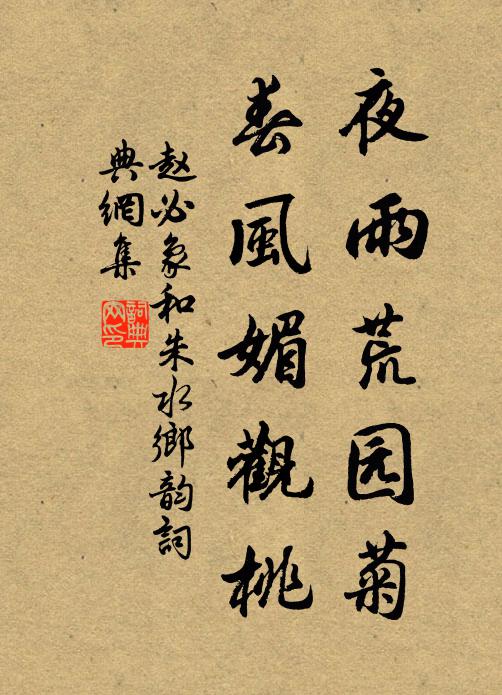 夜雨荒园菊
春風媚觀桃
赵必象和朱水鄉韵詞
典網集
詞典網印